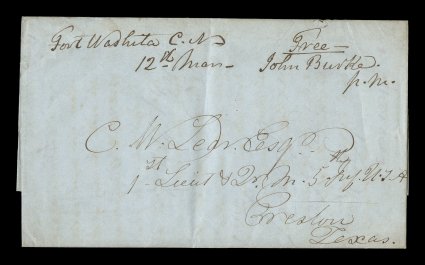 Fort Washita C. N.
12th Mar
Free
John Burke
p.m.
C. W. Lear Esq.
1st Lieut & Qr. M. 5th Inf. U.S.A
Preston
Texas.